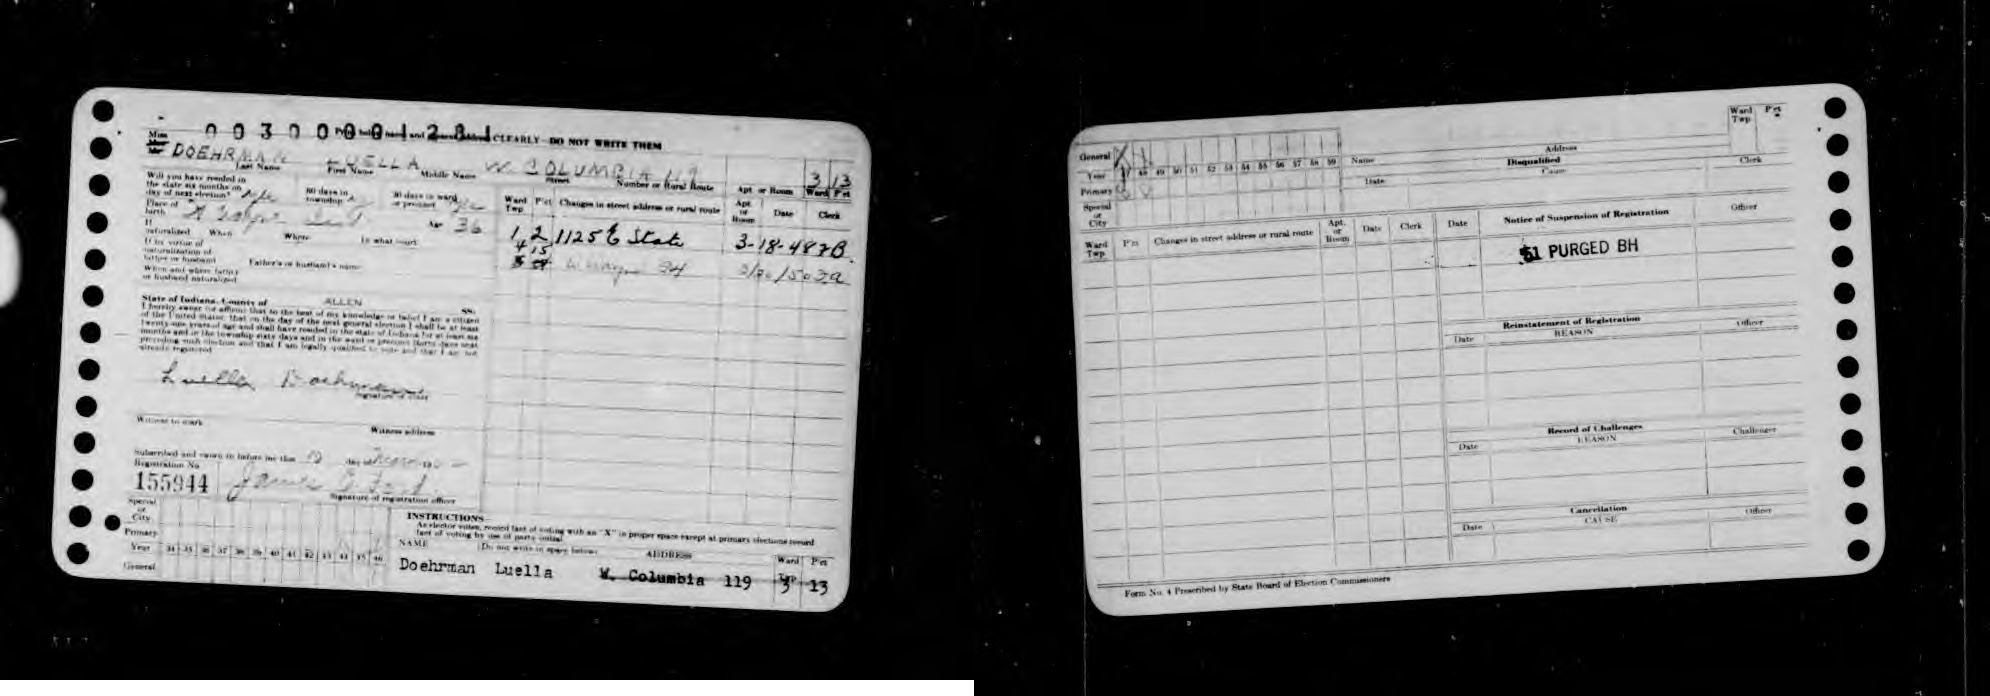 00300001281 CLEARLY—DO NOT WRITE THEM
Miss
DOEHRMAN LUELLA W. COLUMBIA 119 3 13
Last Name First Name Middle Name Street Number or Rural Route Apt or Room Ward P'ct
Will you have resided in
the state six months on
day of next election? 60 days in
township 30 days in ward
or precinct
Ward
Twp P'ct Changes in street address or rural route Apt.
or
Room Date Clerk
Place of
birth Age 36
1 2 1125 E State 3-18-48
4 15
If
naturalized When Where In what court
If by virtue of
naturalization of
father or husband Father's or husband's name
When and where father
or husband naturalized
State of Indiana, County of ALLEN SS:
I hereby swear (or affirm) that to the best of my knowledge or belief I am a citizen
of the United States; that on the day of the next general election I shall be at least
twenty-one years of age and shall have resided in the state of Indiana for at least six
months and in the township sixty days and in the ward or precinct thirty days next
preceding such election and that I am legally qualified to vote and that I am not
already registered
Luella Doehrman
Signature of voter
Witness to mark Witness address
Subscribed and sworn to before me this day
Registration No.
155944 James
Signature of registration officer
Special
or
City
Primary
Year 34 35 36 37 38 39 40 41 42 43 44 45 46
General
INSTRUCTIONS
As elector votes, record fact of voting with an "X" in proper space except at primary elections record
fact of voting by use of party initial
NAME (Do not write in space below) ADDRESS Ward
Twp P'ct
Doehrman Luella W. Columbia 119 3 13
Ward
Twp P'ct
General
Year 47 48 49 50 51 52 53 54 55 56 57 58 59
Primary
Special
or
City
Name Address
Disqualified
Date Cause Clerk
Ward
Twp P'ct Changes in street address or rural route Apt.
or
Room Date Clerk
Date Notice of Suspension of Registration Officer
51 PURGED BH
Reinstatement of Registration
Date REASON Officer
Record of Challenges
Date REASON Challenger
Cancellation
Date CAUSE Officer
Form No. 4 Prescribed by State Board of Election Commissioners